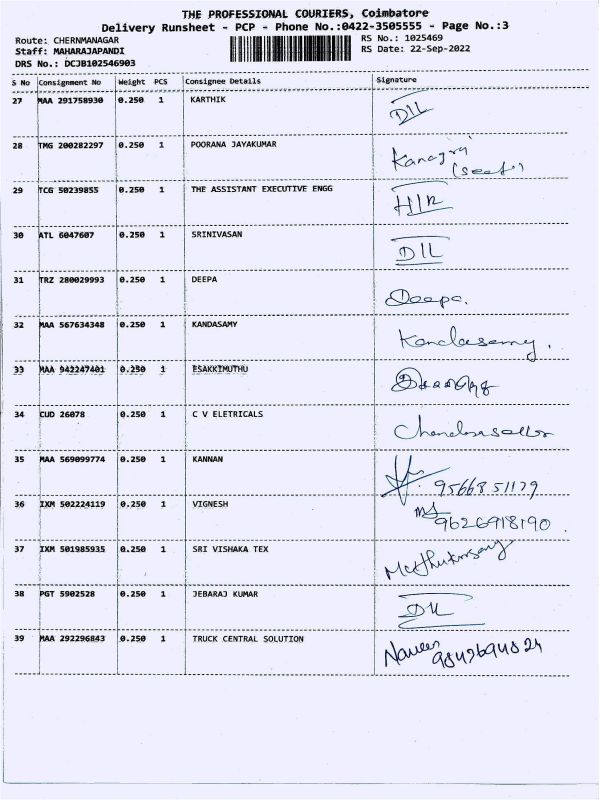 THE PROFESSIONAL COURIERS, Coimbatore
Delivery Runsheet - PCP - Phone No.:0422-3505555 - Page No.:3
Route: CHERNMANAGAR RS No.: 1025469
Staff: MAHARAJAPANDI RS Date: 22-Sep-2022
DRS No.: DCJB102546903
S No Consignment No Weight PCS Consignee Details Signature
27 MAA 291758930 0.250 1 KARTHIK
28 TMG 200282297 0.250 1 POORANA JAYAKUMAR Kanagraj
29 TCG 50239855 0.250 1 THE ASSISTANT EXECUTIVE ENGG
30 ATL 6047607 0.250 1 SRINIVASAN
31 TRZ 280029993 0.250 1 DEEPA Deepa.
32 MAA 567634348 0.250 1 KANDASAMY Kandasamy.
33 MAA 942247401 0.250 1 ESAKKIMUTHU
34 CUD 26078 0.250 1 C V ELETRICALS
35 MAA 569099774 0.250 1 KANNAN 9566851179
36 IXM 502224119 0.250 1 VIGNESH 9626918190
37 IXM 501985935 0.250 1 SRI VISHAKA TEX
38 PGT 5902528 0.250 1 JEBARAJ KUMAR
39 MAA 292296843 0.250 1 TRUCK CENTRAL SOLUTION Naveen
9842694824